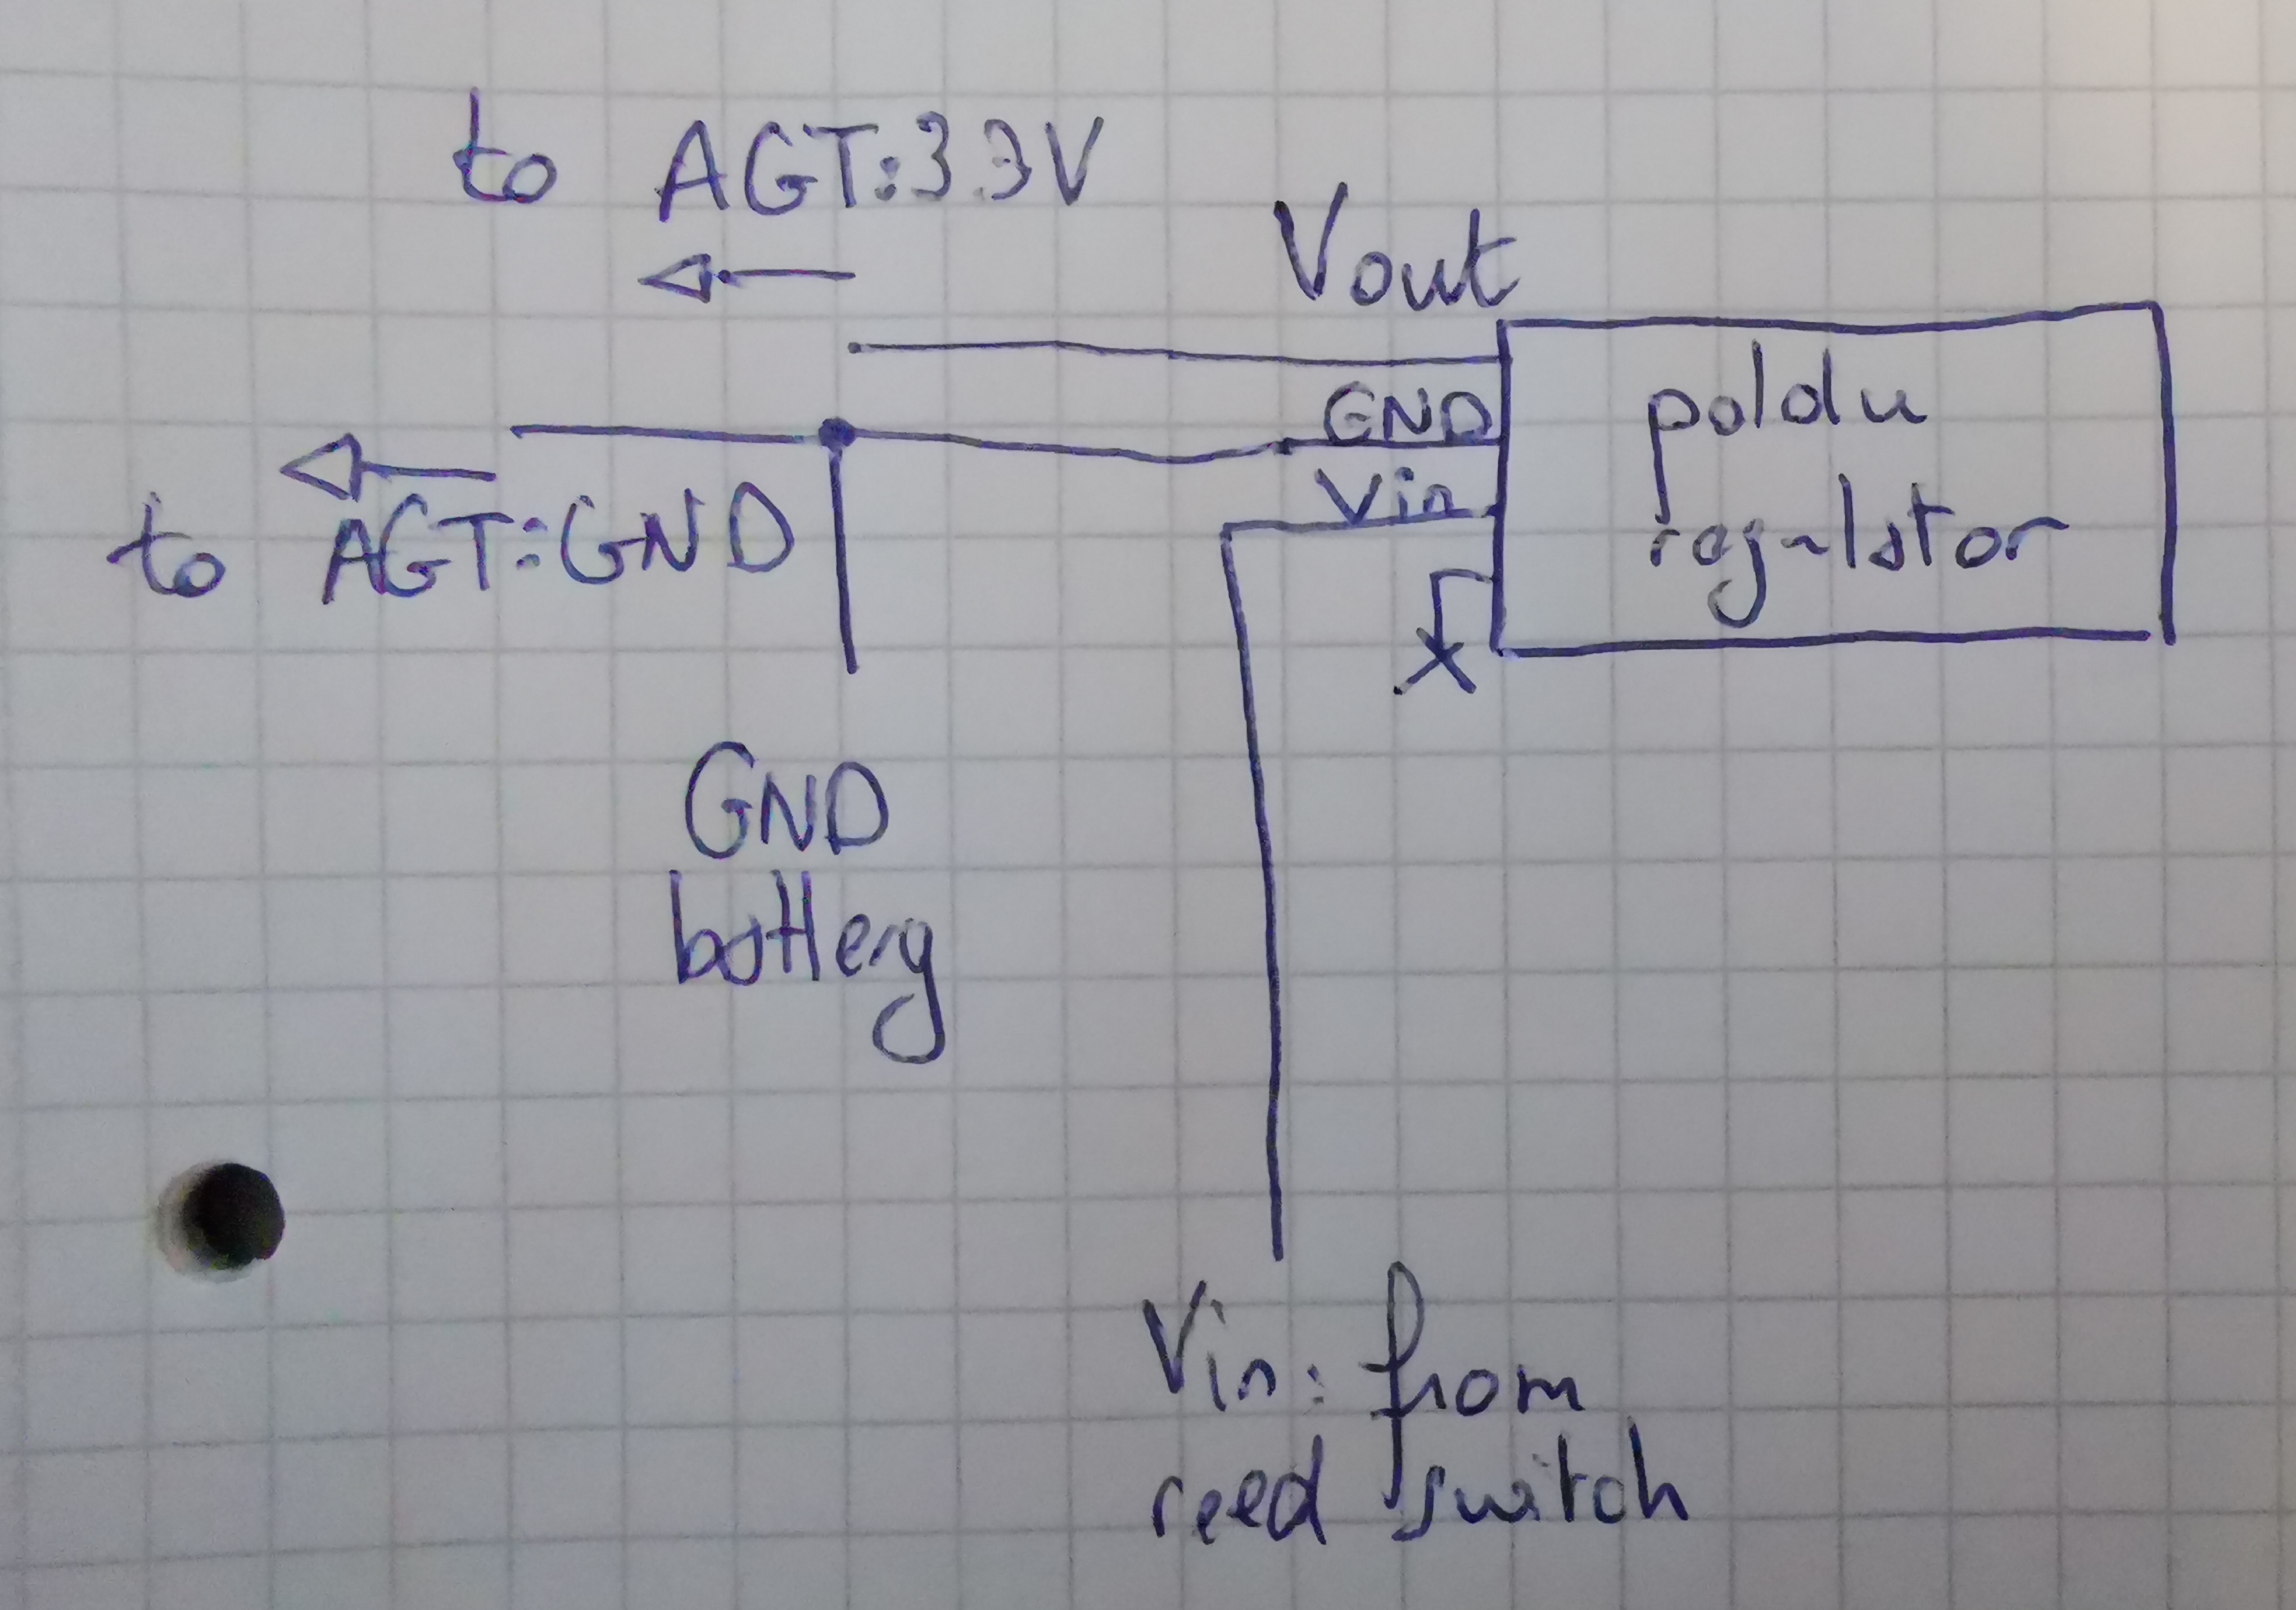 to AGT:3.3V
Vout
GND
Vin
poldu
regulator
to AGT:GND
GND
battery
Vin: from
reed switch